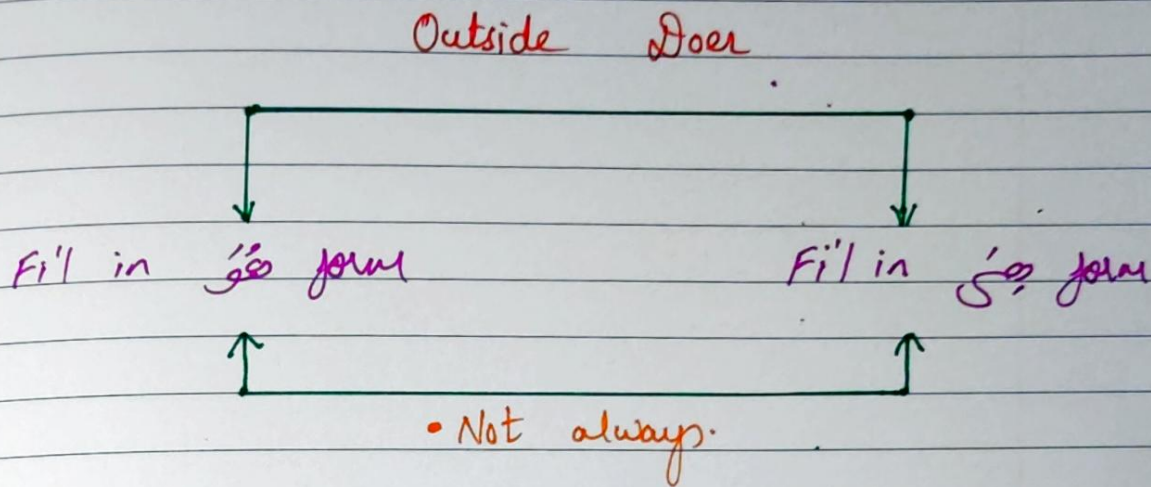 Outside Doer
Fi'l in هُوَ form Fi'l in هِيَ form
• Not always.